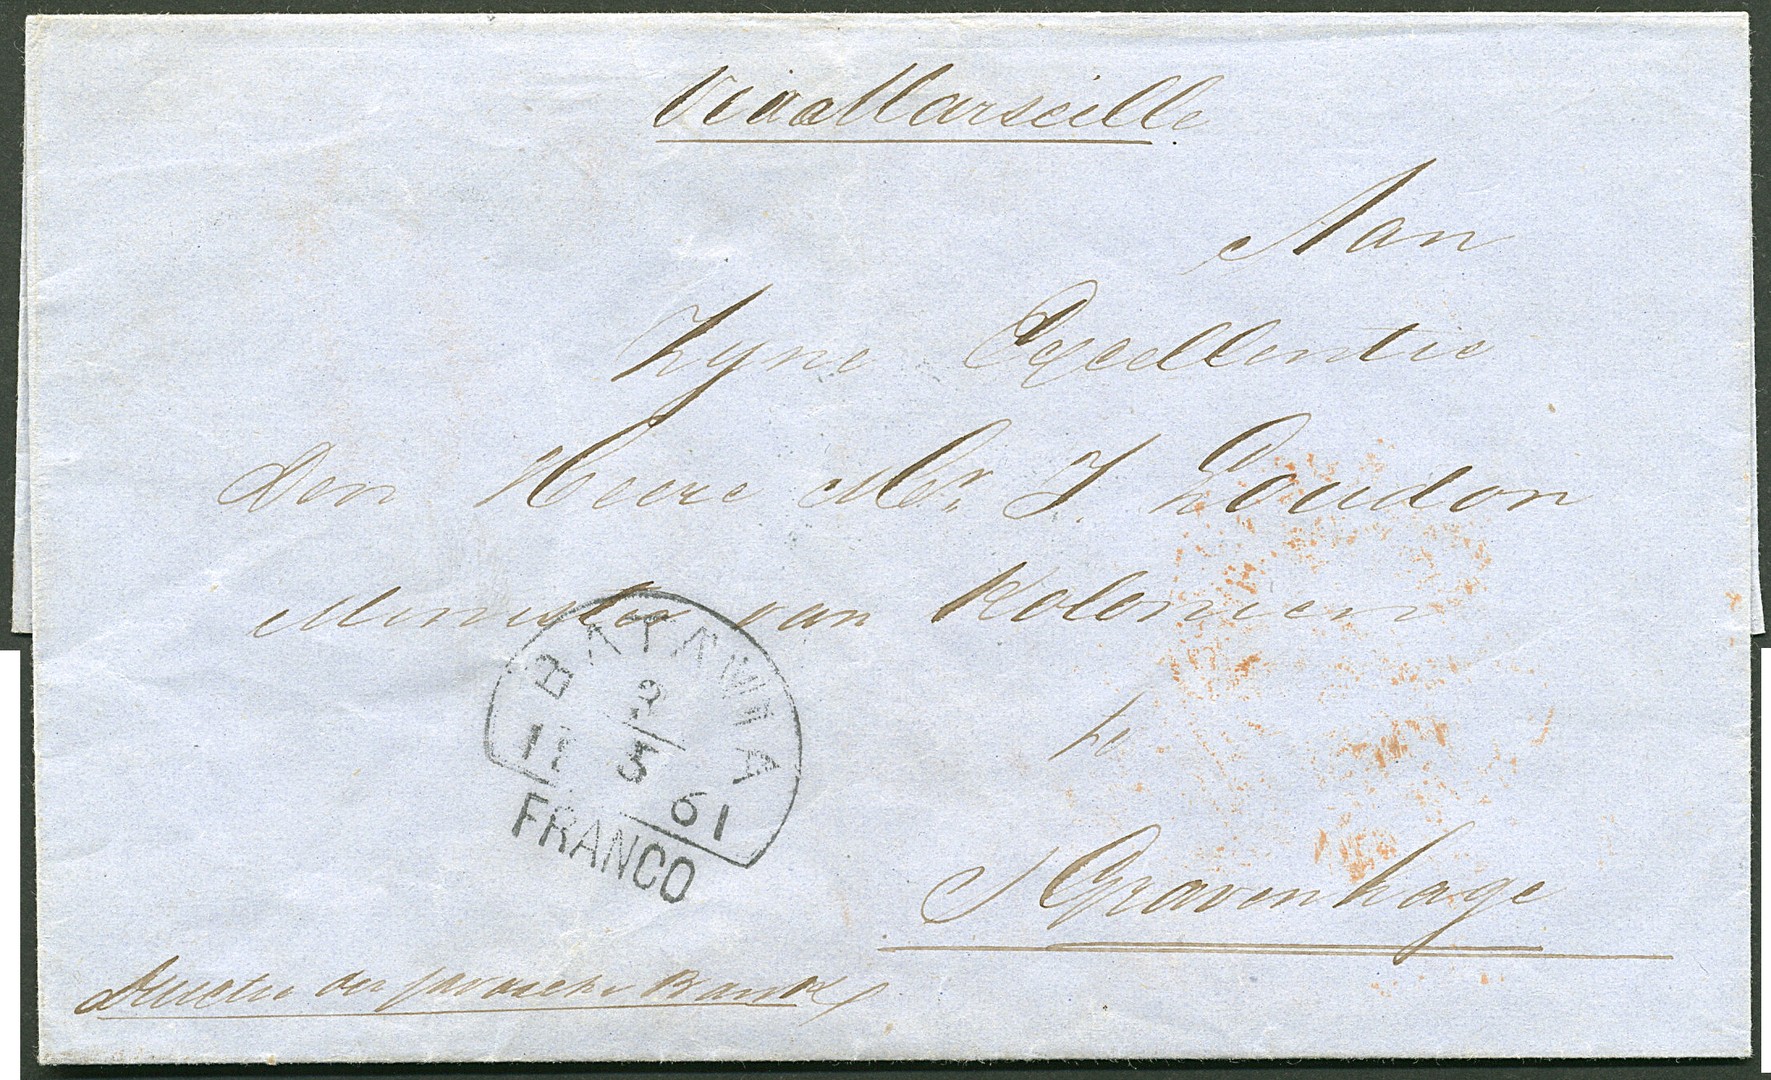 Via Marseille
Aan
Zyne Excellentie
den Heere Mr. J. Loudon
Minister van Kolonien
te
s Gravenhage
Directie der Javasche Bank
BATAVIA
11 5 61
FRANCO